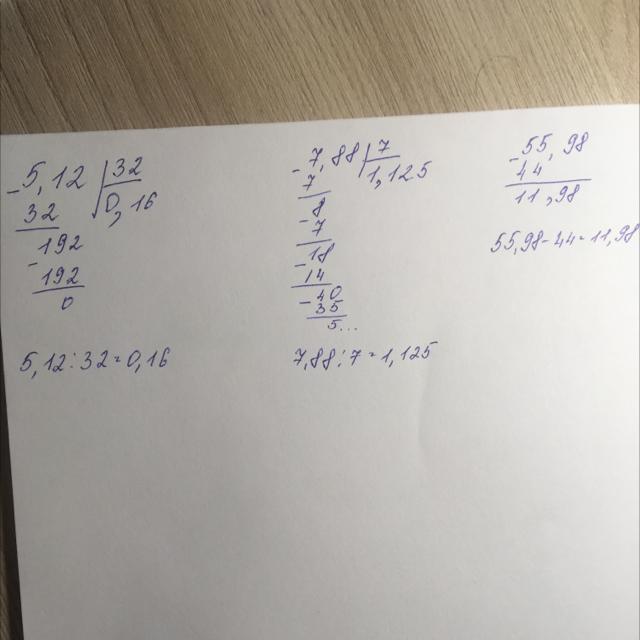 -5,12 |32
32 0,16
-192
192
0
5,12:32=0,16
-7,88 |7
7 1,125
8
-7
-18
14
-40
35
5...
7,88:7=1,125
-55,98
44
11,98
55,98-44=11,98